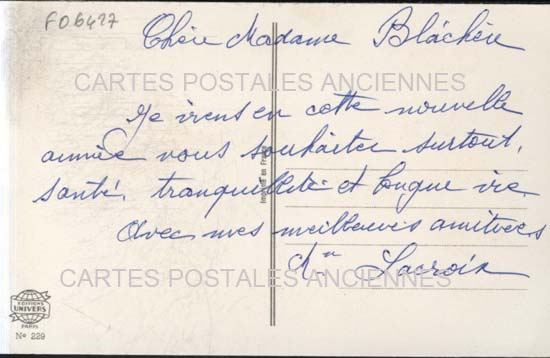 FO6427
Chère Madame Bláchère
CARTES POSTALES ANCIENNES
Je viens en cette nouvelle
année vous souhaiter surtout,
santé, tranquillité et longue vie.
Avec mes meilleures amitiés
Mme Lacroix
CARTES POSTALES ANCIENNES
Imprimé en France
EDITIONS
UNIVERS
PARIS
No 229